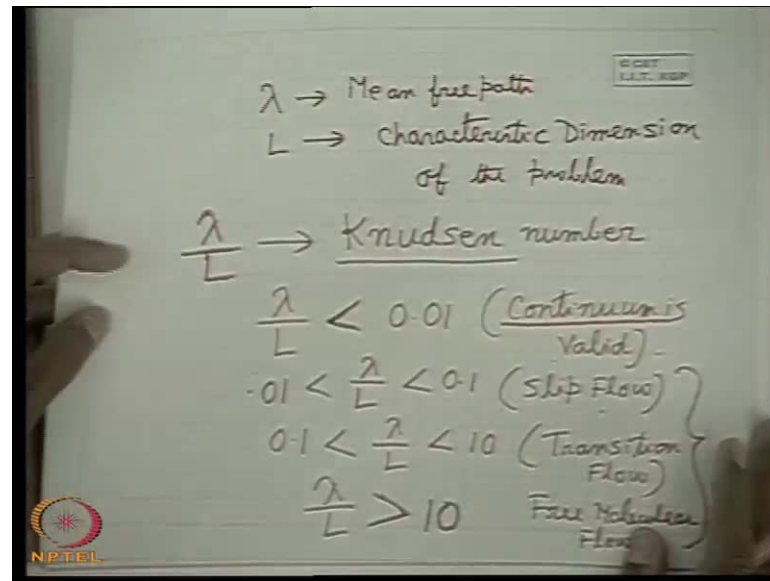 © CET
I.I.T. KGP
λ → Mean free path
L → Characteristic Dimension
of the problem
λ/L → Knudsen number
λ/L < 0.01 (Continuum is
Valid).
.01 < λ/L < 0.1 (Slip Flow)
0.1 < λ/L < 10 (Transition
Flow)
λ/L > 10 Free Molecular
Flow
NPTEL